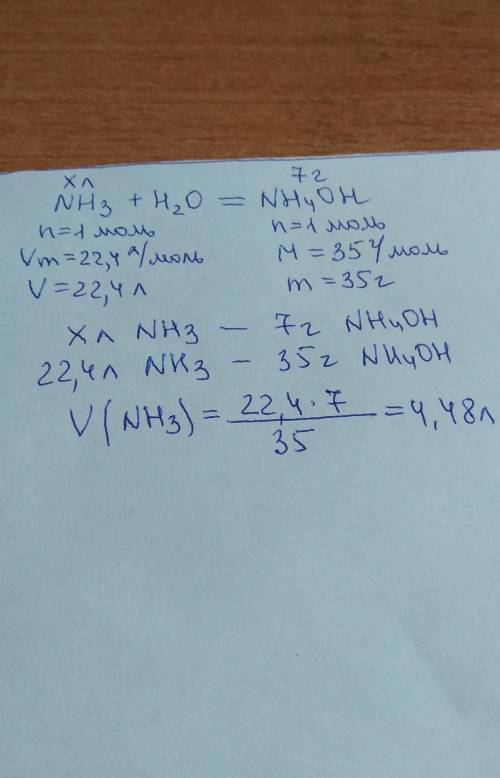 x л 7 г
NH3 + H2O = NH4OH
n=1 моль n=1 моль
Vm=22,4 л/моль M=35 г/моль
V=22,4 л m=35г
x л NH3 — 7г NH4OH
22,4л NH3 — 35г NH4OH
V(NH3) = 22,4·7 / 35 = 4,48л